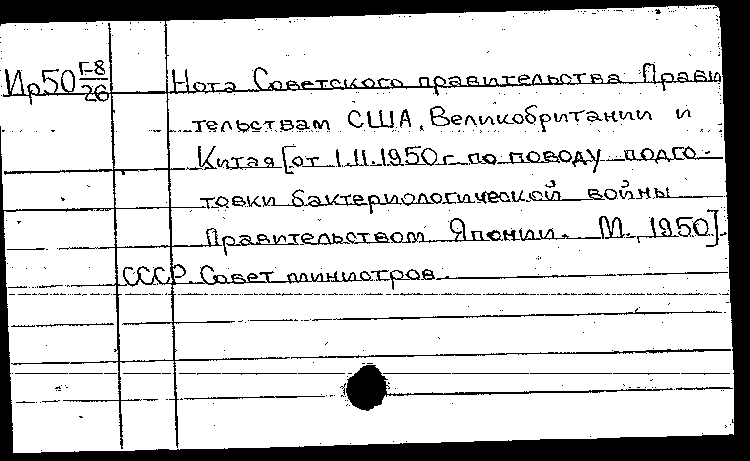 Ир50 Г-8/26 Нота Советского правительства Прави
тельствам США, Великобритании и
Китая [от 1.11.1950 г. по поводу подго-
товки бактериологической войны
Правительством Японии. М., 1950].
СССР. Совет министров.